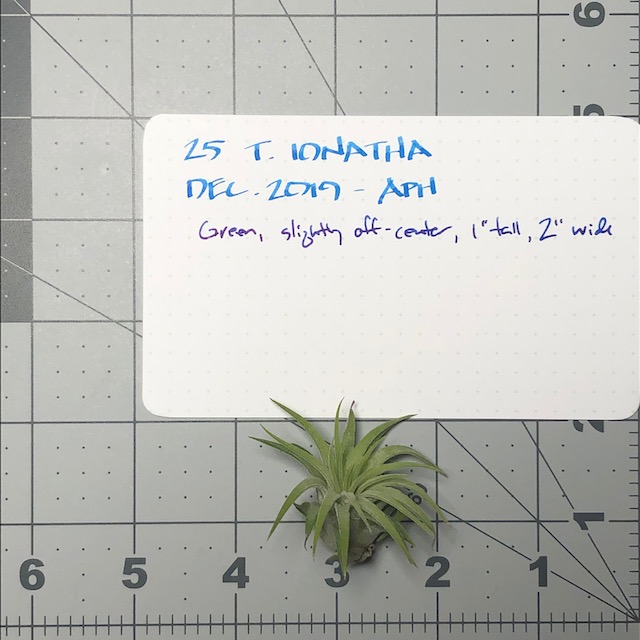 25 T. IONATHA
DEC. 2019 - APH
Green, slightly off-center, 1" tall, 2" wide
6
5
2
1
6 5 4 3 2 1